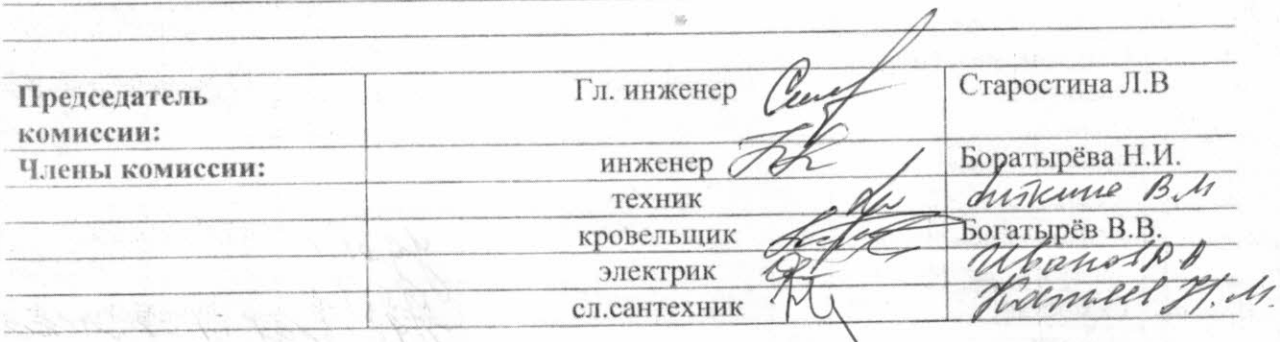 Председатель комиссии: Гл. инженер Старостина Л.В
Члены комиссии: инженер Боратырёва Н.И.
техник В.М
кровельщик Богатырёв В.В.
электрик Иванов
сл.сантехник Н.М.